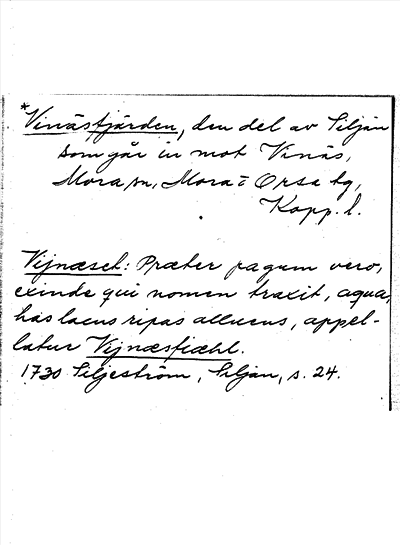 *
Vinäsfjärden, den del av Siljan
som går in mot Vinäs,
Mora sn, Mora o Orsa tg,
Kopp. l.
Vijnæset: Præter pagum vero,
exinde qui nomen traxit, aqua,
has lacus ripas alluens, appel-
latur Vijnæsfiæhl.
1730 Siljeström, Siljan, s. 24.